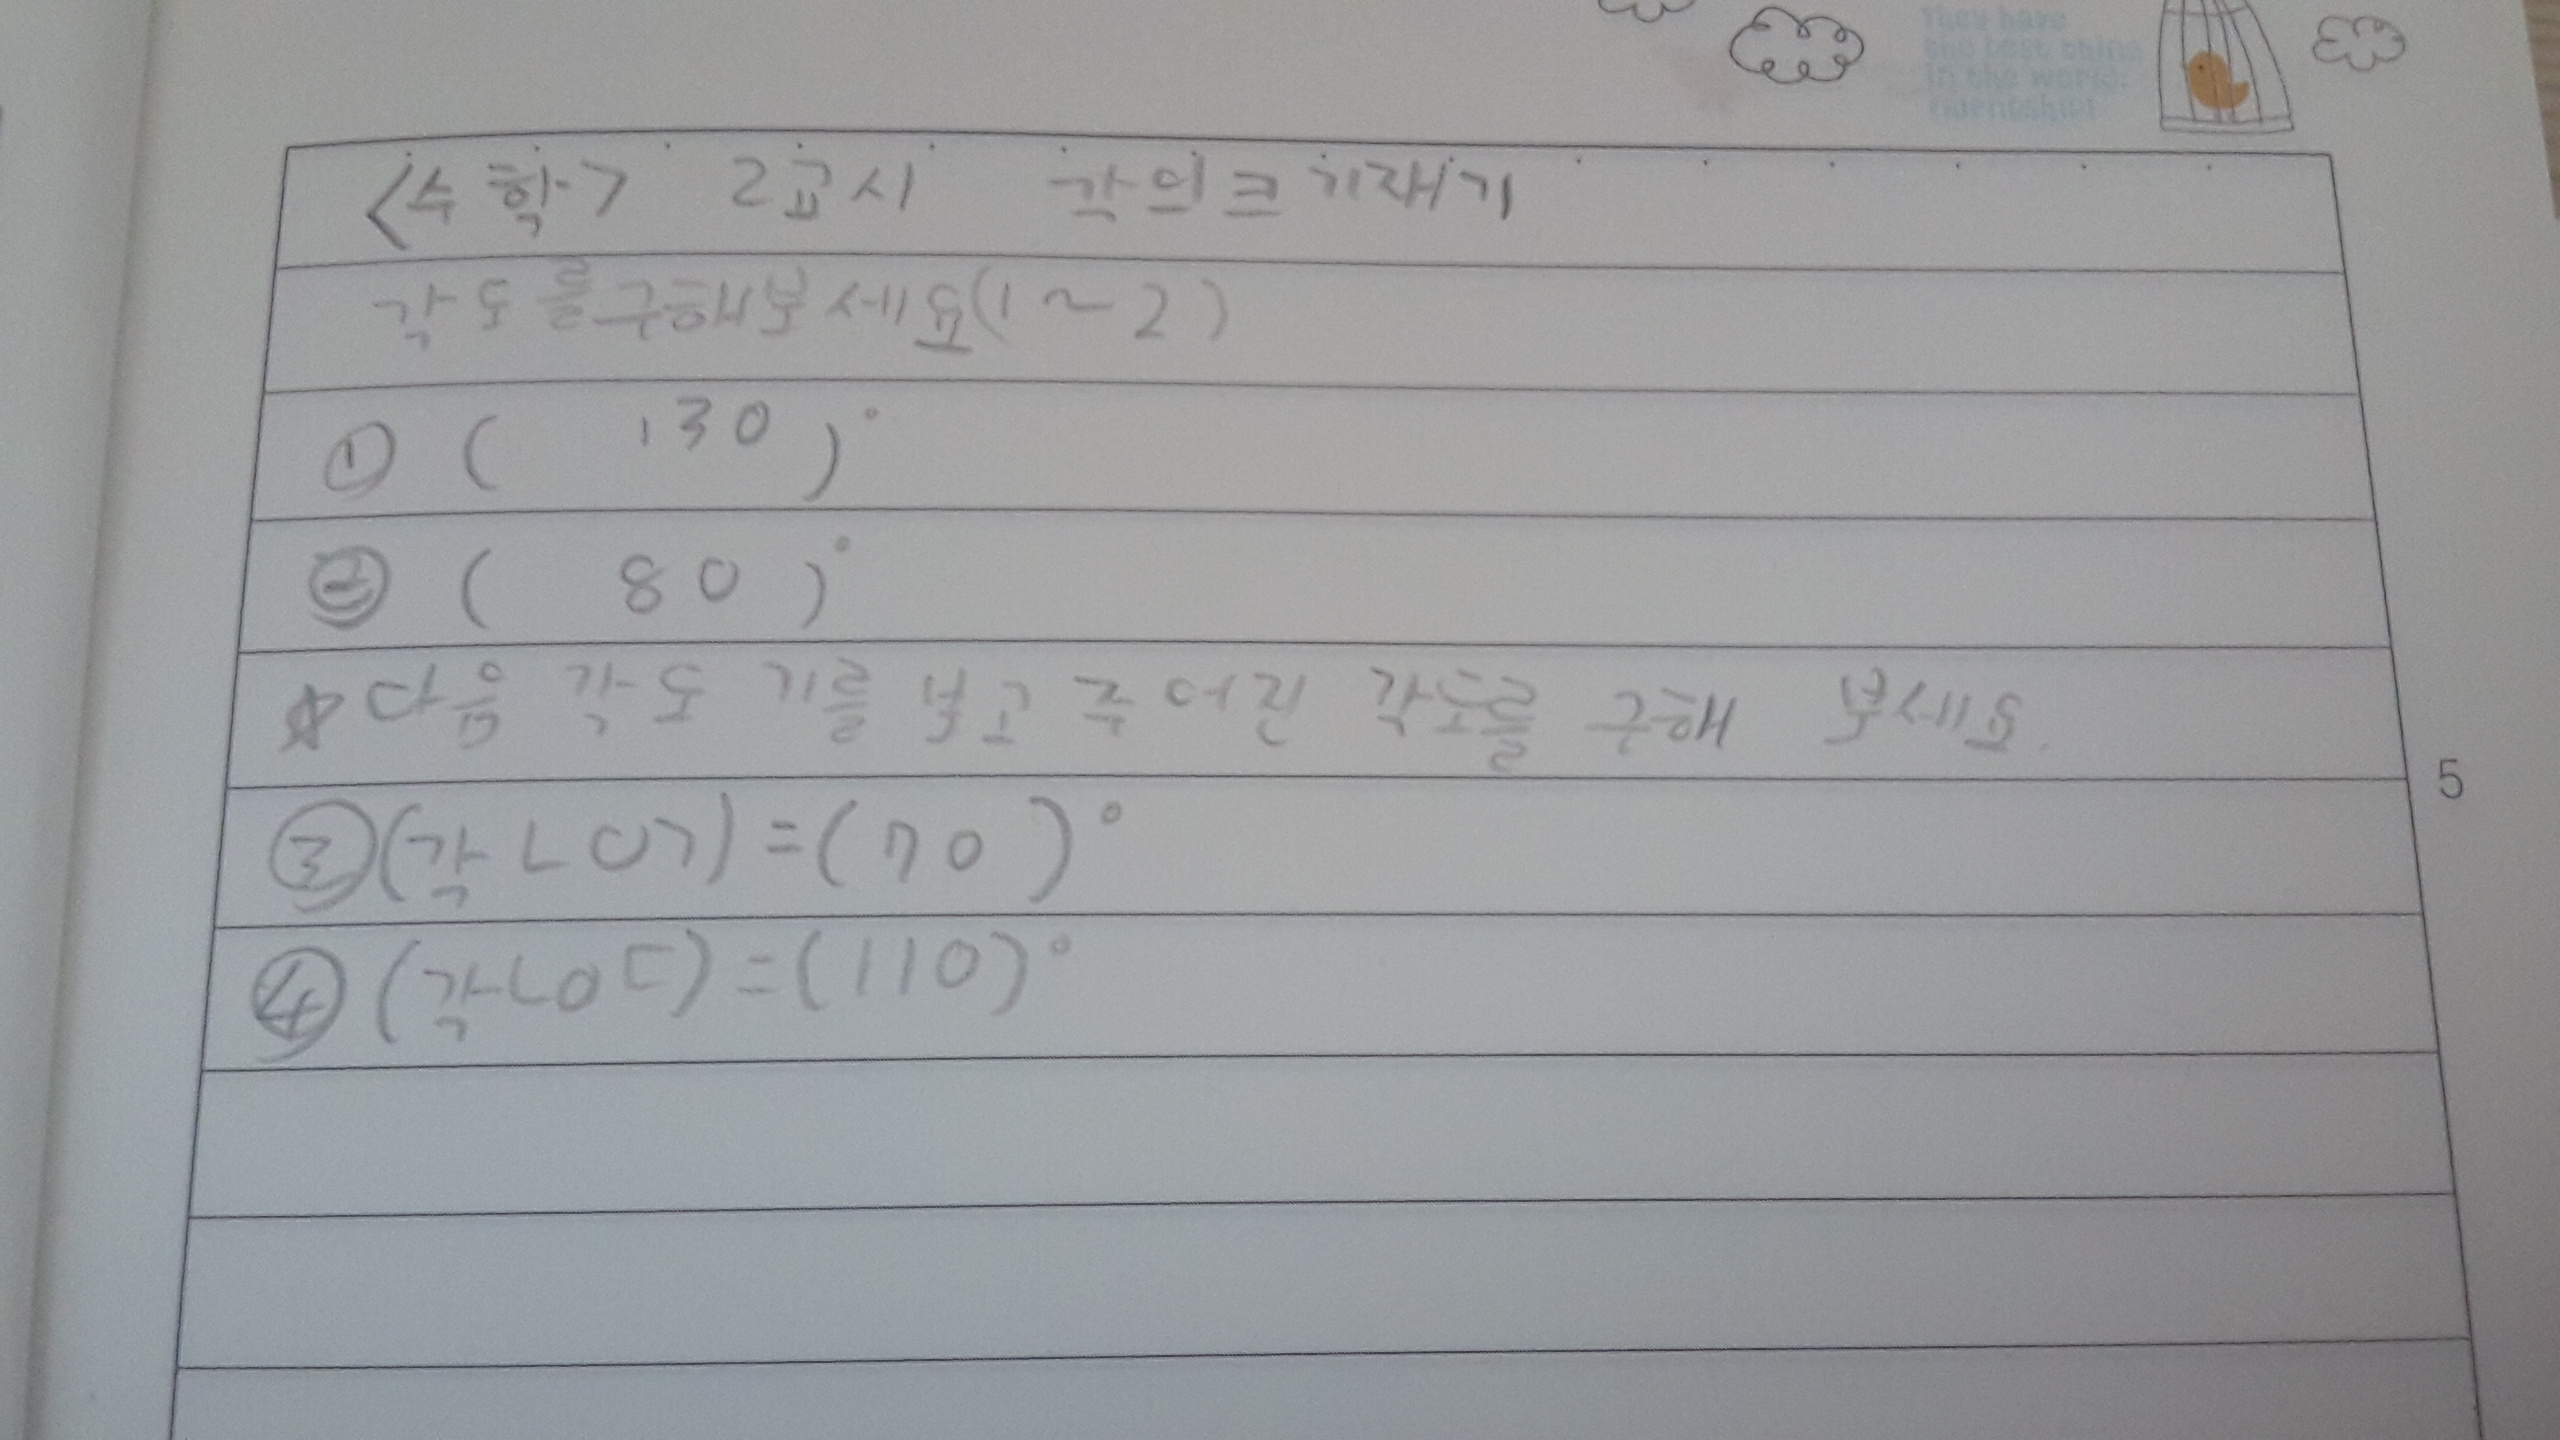 They have
the best thing
in the world.
Fridenship!
<수학> 2교시 각의크기재기
각도를구해보세요(1~2)
① ( 130 )°
② ( 80 )°
☆다음 각도기를 보고 주어진 각도를 구해 보세요.
③(각ㄴㅇㄱ)=(70)°
5
④(각ㄱㅇㄷ)=(110)°